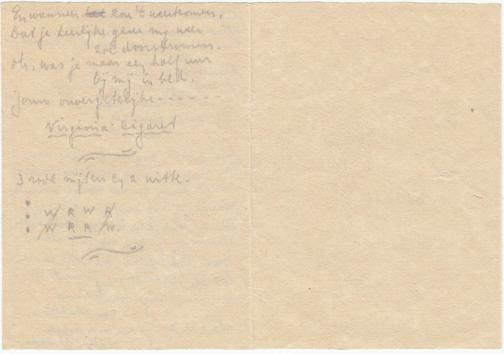 En wanneer zou 't weerkomen,
Dat je heerlijke geur mij weer
zal doorstroomen.
Oh, was je maar een half uur
bij mij in bed.
Jouw onvergetelijke - - - - - -
Virginia Cigaret
3 roode mijten en 2 witte.
W R W R
W R R W.